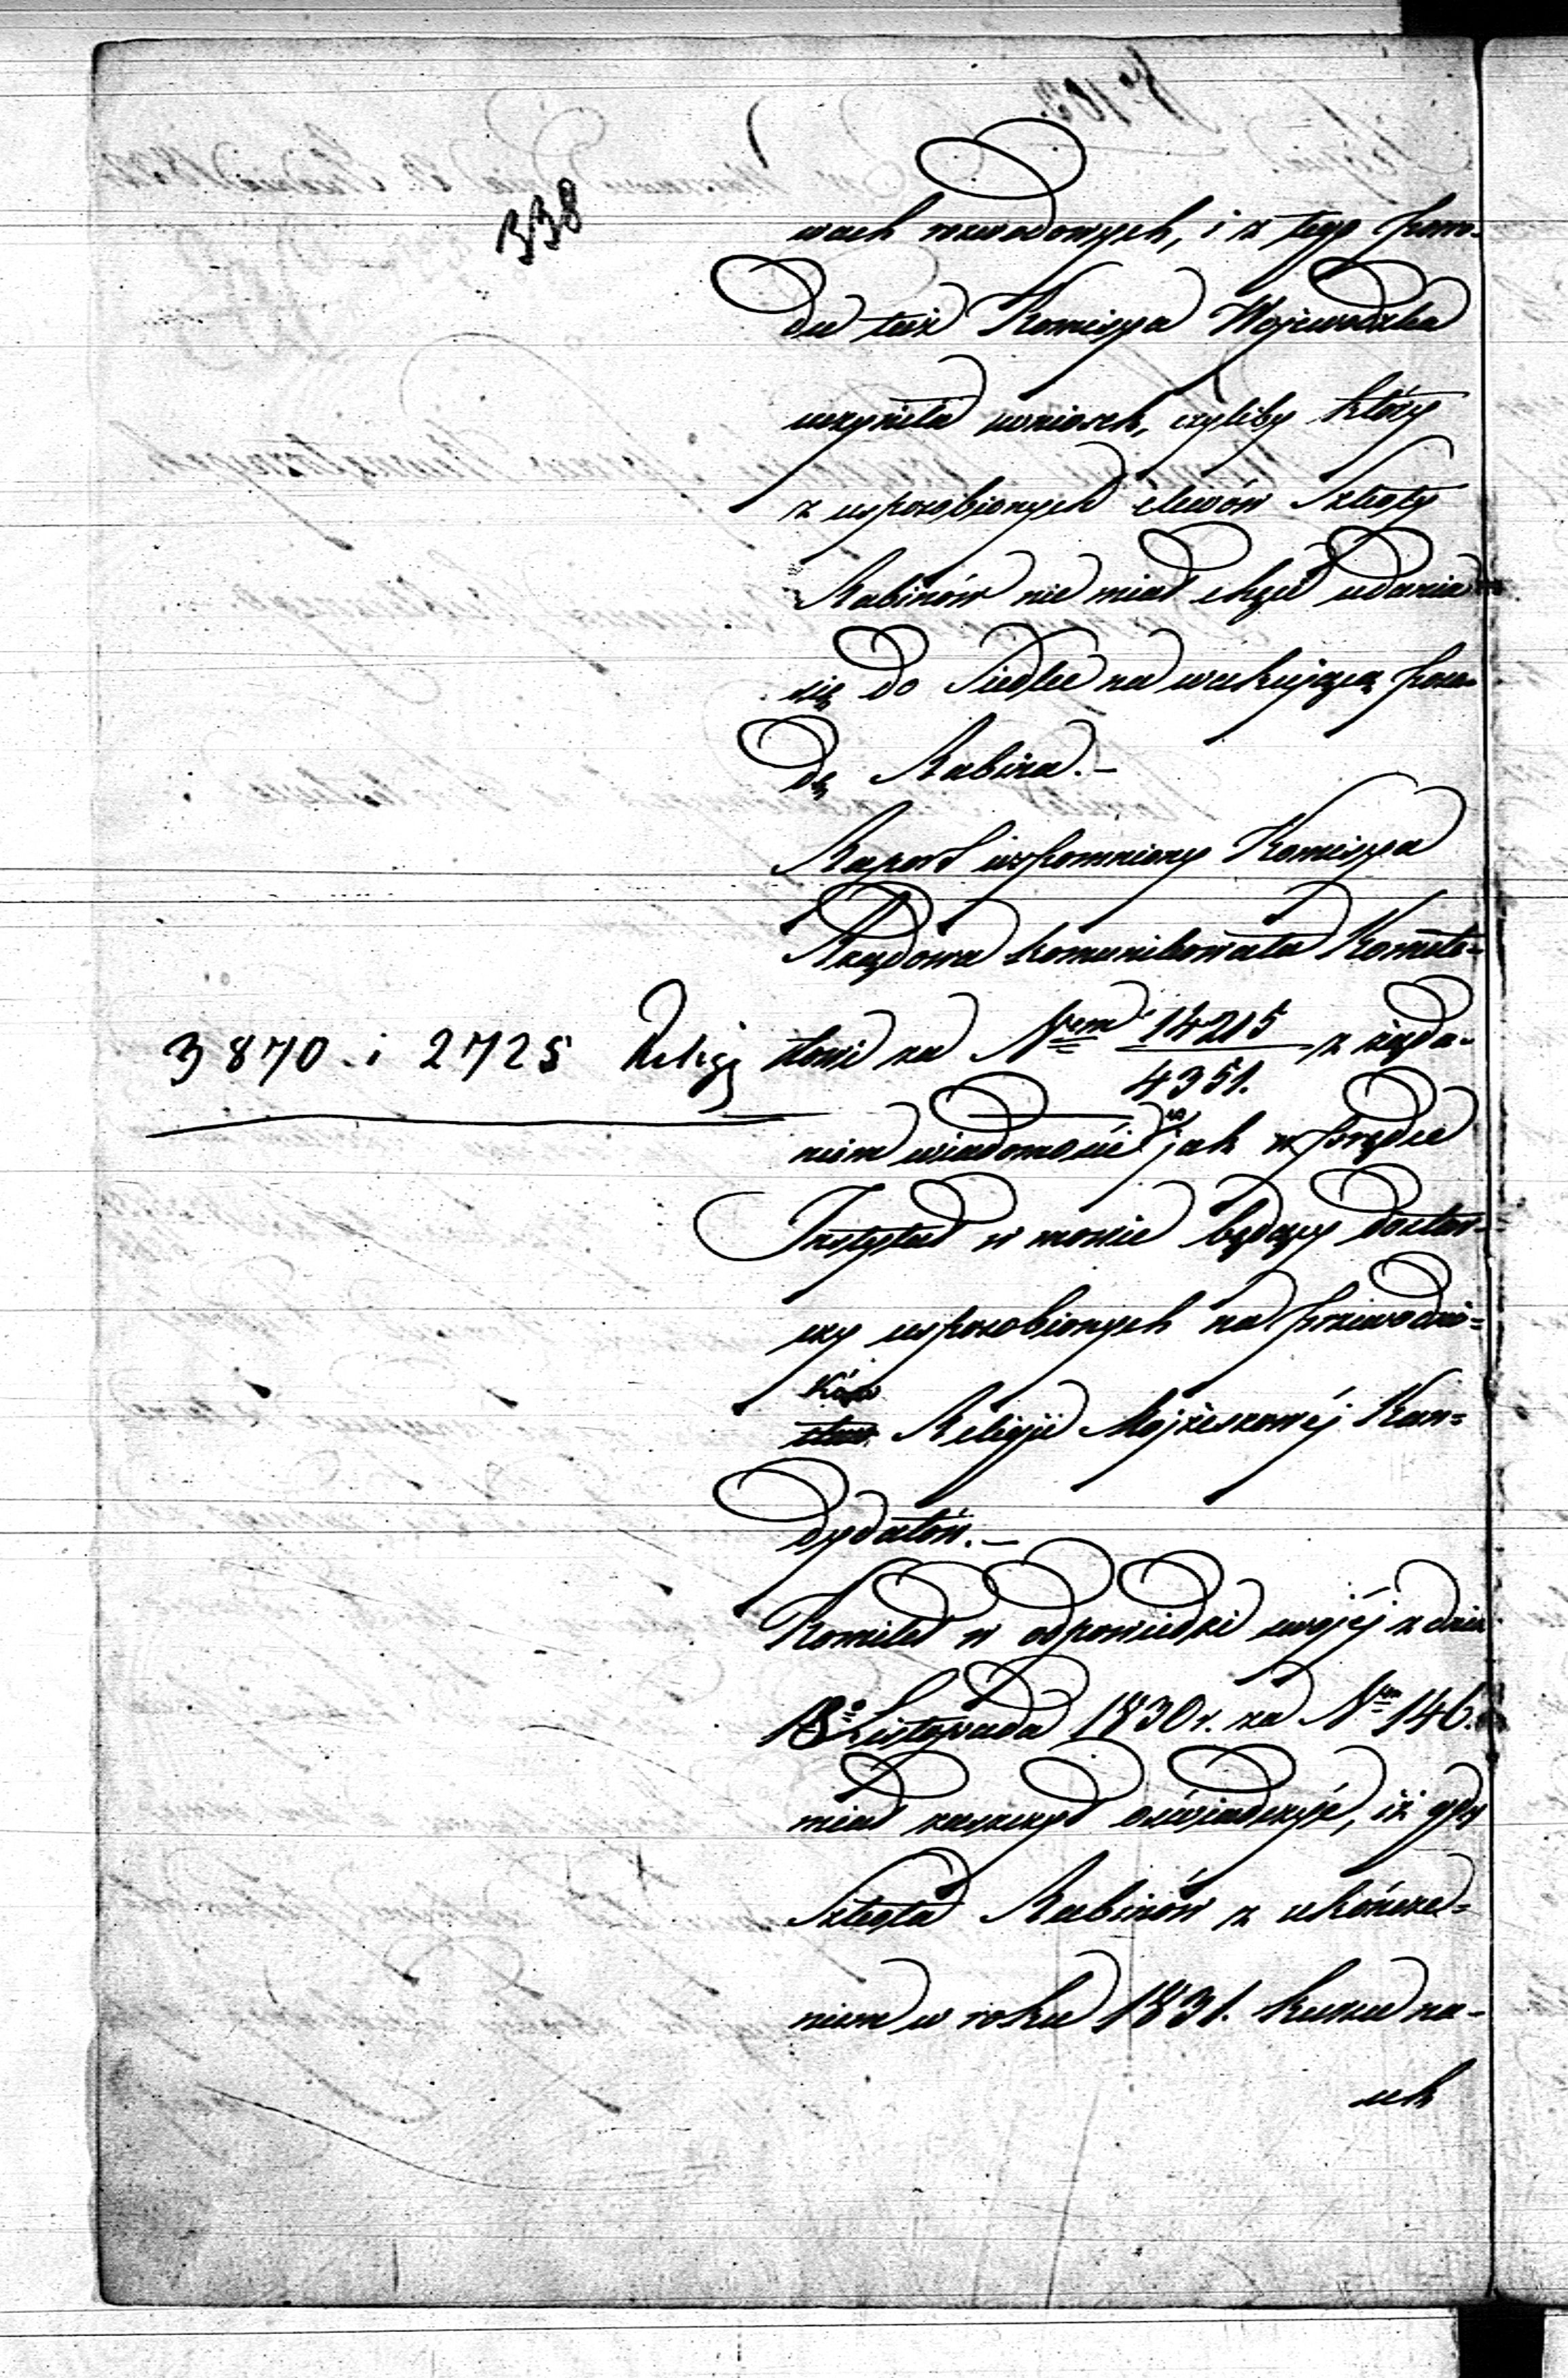 338
wach rozwodowych, i z tego powo-
du też Komissya Wojewodzka
uczyniła wniosek, czyliby który
z usposobionych elewów Szkoły
Rabinów nie miał chęci udania
się do Siedlec na wakującą posa-
dę Rabina.-
Raport wspomniony Komissya
Rządowa komunikowała Komite-
3870. i 2725 Religij towi za Nrem 14215/4351. z żąda-
niem wiadomości jak w prędce
Instytut w mowie będący dostar-
czy usposobionych na przewodni-
ków Religii Mojżeszowéj Kan-
dydatów.-
Komitet w odpowiedzi swojéj z dnia
18o Listopada 1830 r. za Nrm 146.
miał zaszczyt oświadczyć, iż gdy
Szkoła Rabinów z ukończe-
niem w roku 1831. kursu na-
uk